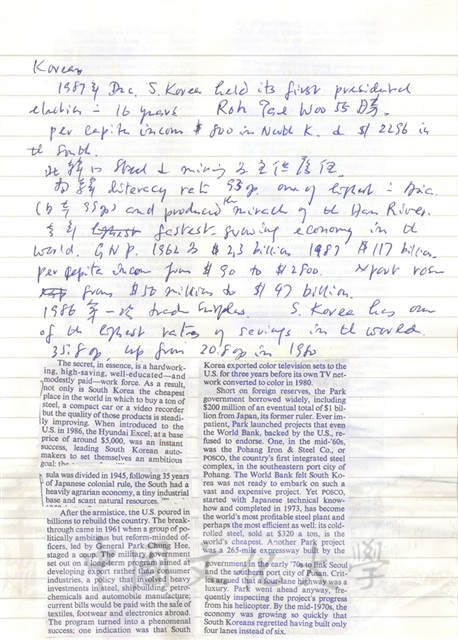 Korean
1987年 Dec. S. Korea held its first presidential
election in 16 years Roh Tae Woo 55歲.
per capita income $ 800 in North K. & $ 2296 in
the South.
Steel & mining
literacy rate 93%, one of highest in Asia.
and produced the miracle of the Han River.
fastest growing economy in the
world. G.N.P. 1962 $ 2.3 billion 1987 $ 117 billion.
per capita income from $ 90 to $ 2800. export rose
from $ 50 million to $ 47 billion.
1986 第一次 trade surplus. S. Korea has one
of the highest rates of savings in the world.
35.8%, up from 20.8% in 1980
The secret, in essence, is a hardwork-
ing, high-saving, well-educated—and
modestly paid—work force. As a result,
not only is South Korea the cheapest
place in the world in which to buy a ton of
steel, a compact car or a video recorder
but the quality of those products is steadi-
ly improving. When introduced to the
U.S. in 1986, the Hyundai Excel, at a base
price of around $5,000, was an instant
success, leading South Korean auto-
makers to set themselves an ambitious
goal:
sula was divided in 1945, following 35 years
of Japanese colonial rule, the South had a
heavily agrarian economy, a tiny industrial
base and scant natural resources.
After the armistice, the U.S. poured in
billions to rebuild the country. The break-
through came in 1961 when a group of po-
litically ambitious but reform-minded of-
ficers, led by General Park Chung Hee,
staged a coup. The military government
set out on a long-term program of
developing export rather than consumer
industries, a policy that required heavy
investments in steel, shipbuilding, petro-
chemicals and automobile manufacture;
current bills would be paid with the sale of
textiles, footwear and electronics abroad.
The program turned into a phenomenal
success; one indication was that South
Korea exported color television sets to the
U.S. for three years before its own TV net-
work converted to color in 1980.
Short on foreign reserves, the Park
government borrowed widely, including
$200 million of an eventual total of $1 bil-
lion from Japan, its former ruler. Ever im-
patient, Park launched projects that even
the World Bank, backed by the U.S., re-
fused to endorse. One, in the mid-'60s,
was the Pohang Iron & Steel Co., or
POSCO, the country's first integrated steel
complex, in the southeastern port city of
Pohang. The World Bank felt South Ko-
rea was not ready to embark on such a
vast and expensive project. Yet POSCO,
started with Japanese technical know-
how and completed in 1973, has become
the world's most profitable steel plant and
perhaps the most efficient as well: its cold-
rolled steel, sold at $320 a ton, is the
world's cheapest. Another Park project
was a 265-mile expressway built by the
government in the early '70s to link Seoul
and the southern port city of Pusan. Crit-
ics argued that a four-lane highway was a
luxury. Park went ahead anyway, fre-
quently inspecting the project's progress
from his helicopter. By the mid-1970s, the
economy was growing so quickly that
South Koreans regretted having built only
four lanes instead of six.